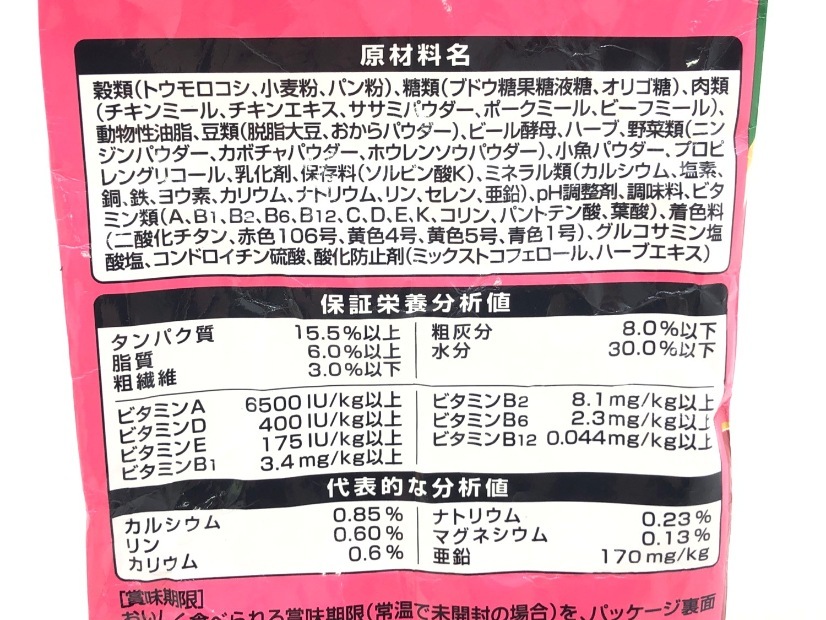 原材料名
穀類(トウモロコシ、小麦粉、パン粉)、糖類(ブドウ糖果糖液糖、オリゴ糖)、肉類
(チキンミール、チキンエキス、ササミパウダー、ポークミール、ビーフミール)、
動物性油脂、豆類(脱脂大豆、おからパウダー)、ビール酵母、ハーブ、野菜類(ニン
ジンパウダー、カボチャパウダー、ホウレンソウパウダー)、小魚パウダー、プロピ
レングリコール、乳化剤、保存料(ソルビン酸K)、ミネラル類(カルシウム、塩素、
銅、鉄、ヨウ素、カリウム、ナトリウム、リン、セレン、亜鉛)、pH調整剤、調味料、ビタ
ミン類(A、B1、B2、B6、B12、C、D、E、K、コリン、パントテン酸、葉酸)、着色料
(二酸化チタン、赤色106号、黄色4号、黄色5号、青色1号)、グルコサミン塩
酸塩、コンドロイチン硫酸、酸化防止剤(ミックストコフェロール、ハーブエキス)
保証栄養分析値
タンパク質 15.5%以上 粗灰分 8.0%以下
脂質 6.0%以上 水分 30.0%以下
粗繊維 3.0%以下
ビタミンA 6500IU/kg以上 ビタミンB2 8.1mg/kg以上
ビタミンD 400IU/kg以上 ビタミンB6 2.3mg/kg以上
ビタミンE 175IU/kg以上 ビタミンB12 0.044mg/kg以上
ビタミンB1 3.4mg/kg以上
代表的な分析値
カルシウム 0.85% ナトリウム 0.23%
リン 0.60% マグネシウム 0.13%
カリウム 0.6% 亜鉛 170mg/kg
[賞味期限]
おいしく食べられる賞味期限(常温で未開封の場合)を、パッケージ裏面